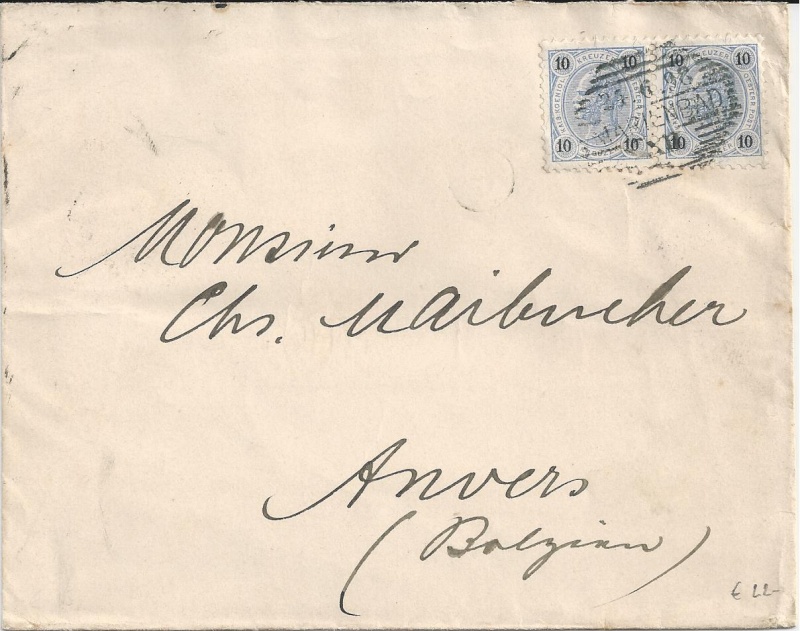 10 KREUZER 10 10 KREUZER 10
24 6 98
MARIENBAD
10 10 10 10
Monsieur
Chs. Maibucher
Anvers
(Belgien)
€ 22-